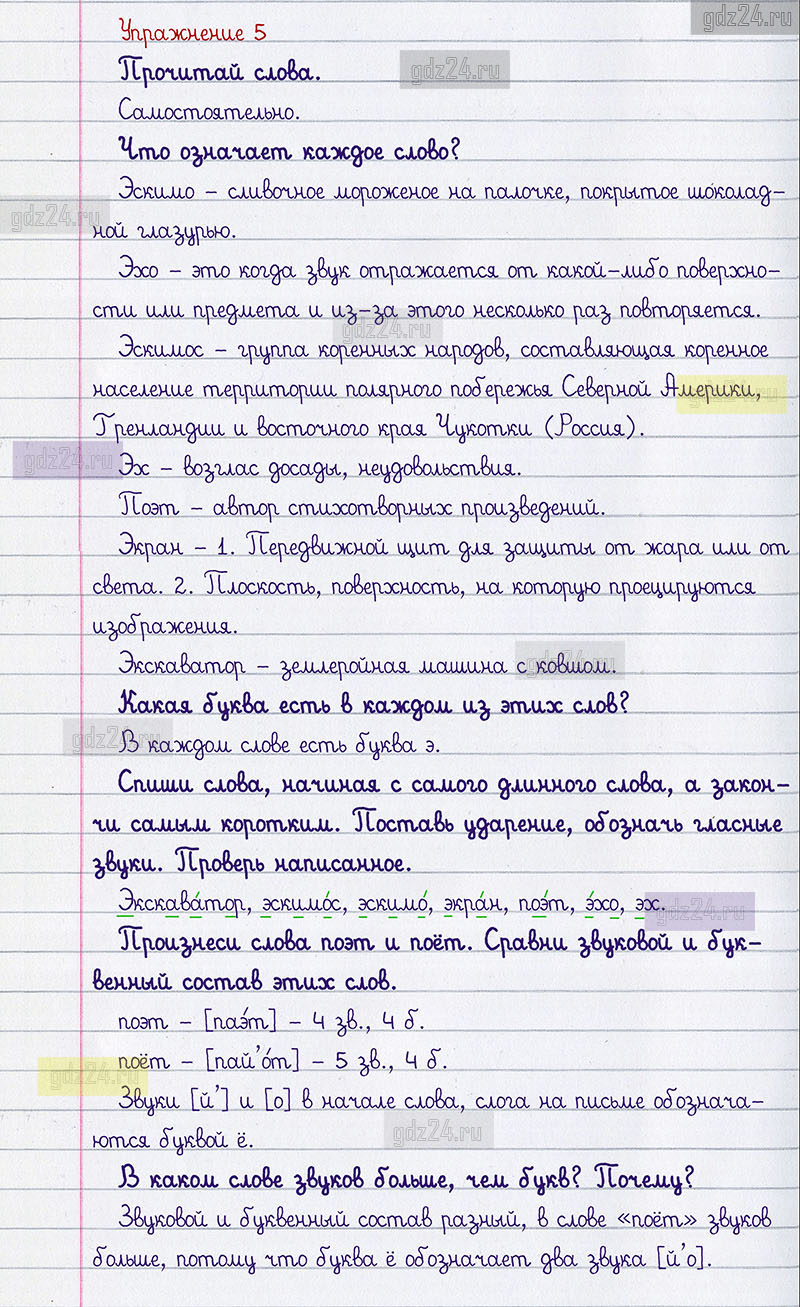 gdz24.ru
Упражнение 5
Прочитай слова.
gdz24.ru
Самостоятельно.
Что означает каждое слово?
Эскимо – сливочное мороженое на палочке, покрытое шоколад-
gdz24.ru
ной глазурью.
Эхо – это когда звук отражается от какой-либо поверхно-
сти или предмета и из-за этого несколько раз повторяется.
gdz24.ru
Эскимос – группа коренных народов, составляющая коренное
население территории полярного побережья Северной Америки,
gdz24.ru
Гренландии и восточного края Чукотки (Россия).
gdz24.ru
Эх – возглас досады, неудовольствия.
Поэт – автор стихотворных произведений.
Экран – 1. Передвижной щит для защиты от жара или от
света. 2. Плоскость, поверхность, на которую проецируются
изображения.
Экскаватор – землеройная машина с ковшом.
gdz24.ru
Какая буква есть в каждом из этих слов?
gdz24.ru
В каждом слове есть буква э.
Спиши слова, начиная с самого длинного слова, а закон-
чи самым коротким. Поставь ударение, обозначь гласные
звуки. Проверь написанное.
Экскава́тор, эскимо́с, эскимо́, экра́н, поэ́т, э́хо, эх.
gdz24.ru
Произнеси слова поэт и поёт. Сравни звуковой и бук-
венный состав этих слов.
поэт – [паэ́т] – 4 зв., 4 б.
поёт – [пай’о́т] – 5 зв., 4 б.
gdz24.ru
Звуки [й’] и [о] в начале слова, слога на письме обознача-
gdz24.ru
ются буквой ё.
В каком слове звуков больше, чем букв? Почему?
Звуковой и буквенный состав разный, в слове «поёт» звуков
больше, потому что буква ё обозначает два звука [й’о].